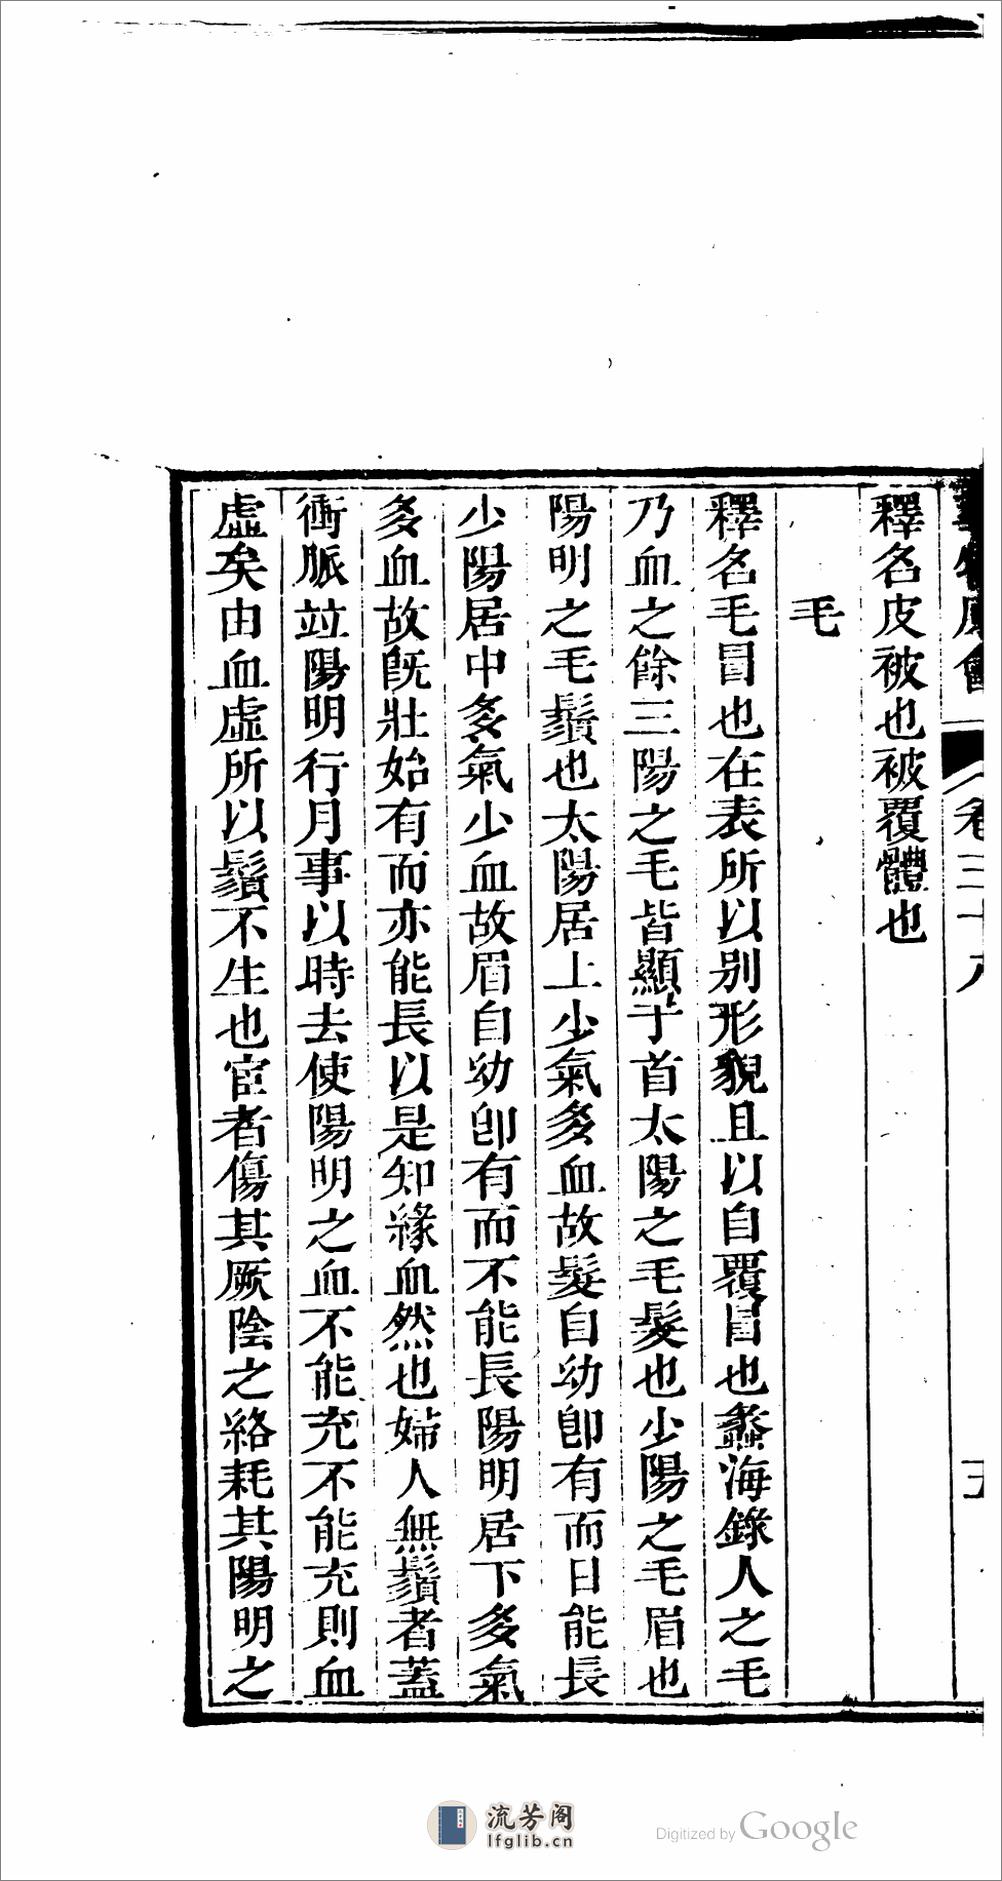 釋名皮被也被覆體也
毛
釋名毛冒也在表所以別形貌且以自覆冒也蠡海錄人之毛
乃血之餘三陽之毛皆顯于首太陽之毛髮也少陽之毛眉也
陽明之毛鬚也太陽居上少氣多血故髮自幼卽有而日能長
少陽居中多氣少血故眉自幼卽有而不能長陽明居下多氣
多血故旣壯始有而亦能長以是知緣血然也婦人無鬚者蓋
衝脈竝陽明行月事以時去使陽明之血不能充不能充則血
虛矣由血虛所以鬚不生也宦者傷其厥陰之絡耗其陽明之
流芳阁
lfglib.cn
Digitized by Google